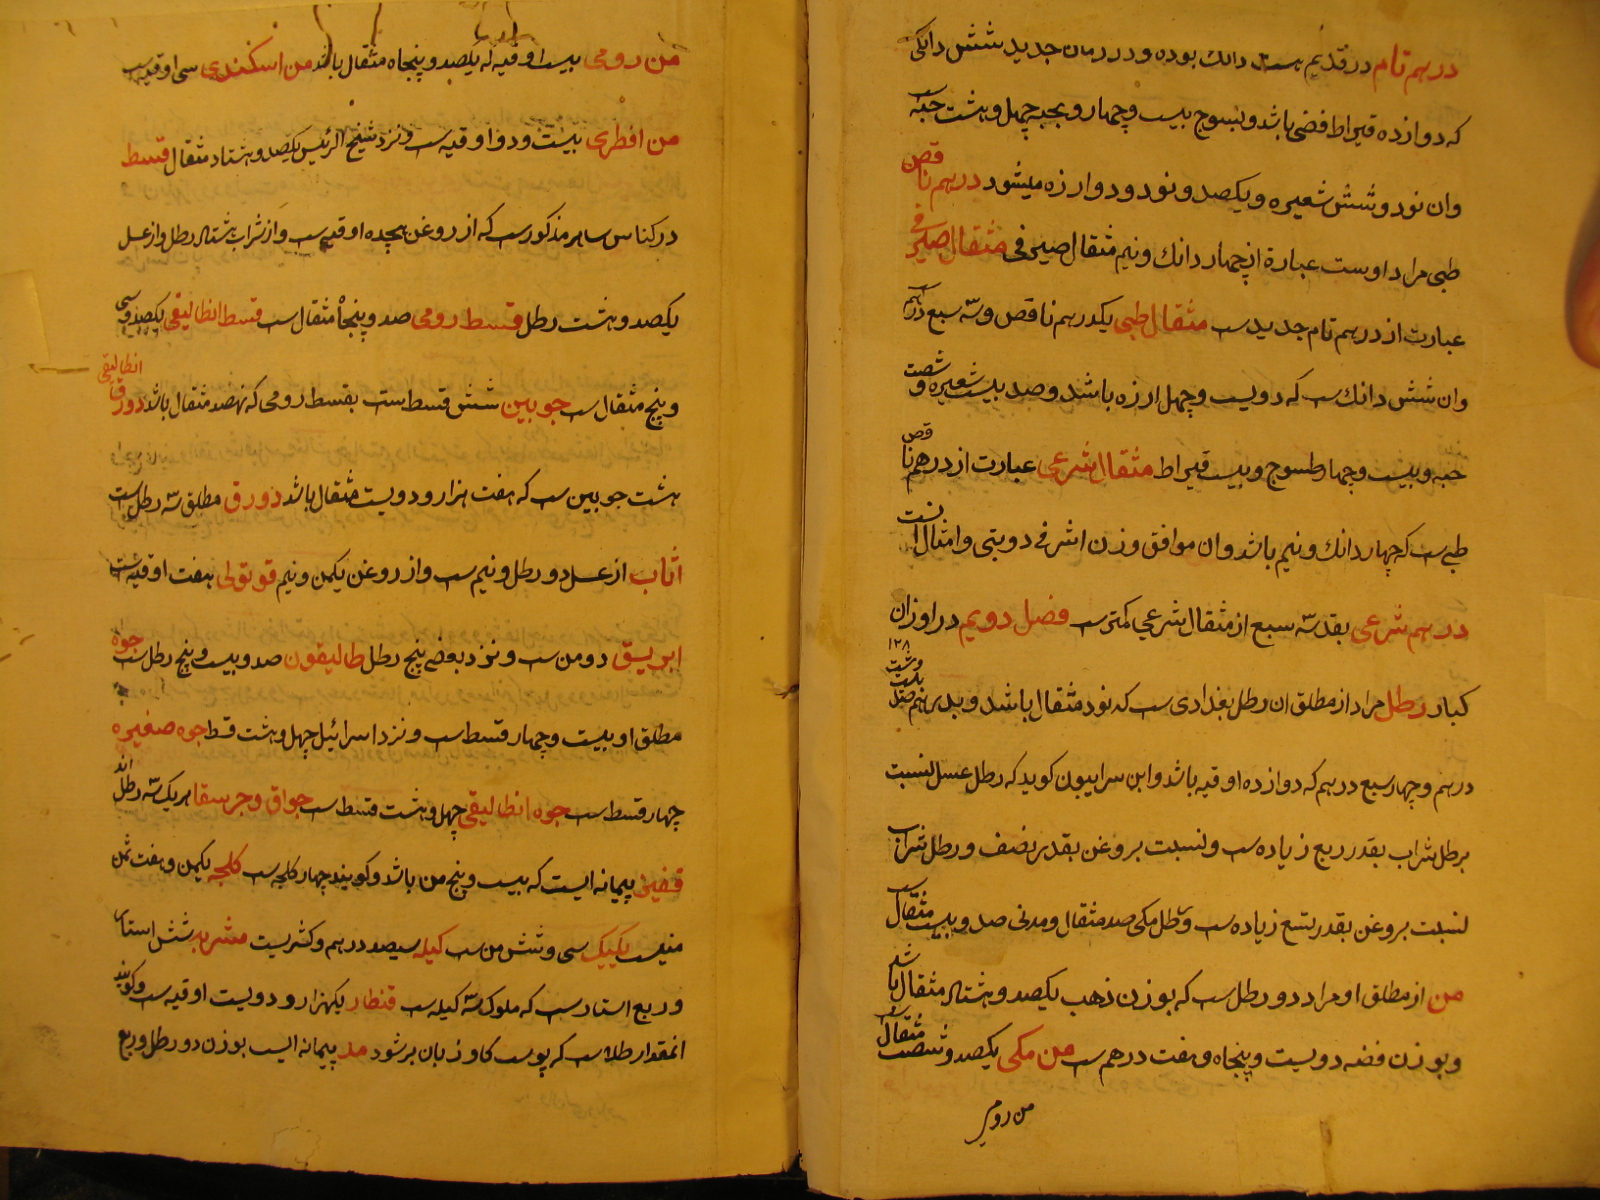 درهم تام در قدیم هشت دانك بوده و در زمان جدید شش دانكی
که دوازده قیراط فضی باشد و بسوج بیست و چهار و بحبه چهل و هشت حبه
وان نود و شش شعیره و یکصد و نود و دو ارزه میشود درهم ناقص
طبی مراد اوست عبارة از چهار دانك و نیم مثقال صیرفی مثقال صیرفی
عبارت از درهم تام جدیدست مثقال طبی یکدرهم ناقص و سه سبع درهم
وان شش دانك ست که دویست و چهل ارزه باشد و صد بیست شعیره و شصت
حبه و بیست و چهار طسوج و بیست قیراط مثقال شرعی عبارت از درهم ناقص
طبی ست که چهار دانك و نیم باشد وان موافق وزن اشرفی دوبتی و امثال انست
درهم شرعی بقدر سه سبع از مثقال شرعی کمترست فصل دویم در اوزان
کبار رطل مراد از مطلق ان رطل بغدادی ست که نود مثقال باشد و بدرهم صد و بیست و هشت ۱۲۸
درهم و چهار سبع درهم که دوازده اوقیه باشد و ابن سرابیون کوید که رطل عسل نسبت
برطل شراب بقدر ربع زیاده ست و نسبت بروغن بقدر نصف و رطل شراب
نسبت بروغن بقدر تسع زیاده ست و رطل مکی صد مثقال و مدنی صد و بیست مثقال ست
من از مطلق او مراد دو رطل ست که بوزن ذهب یکصد و هشتاد مثقال باشد
و بوزن فضه دویست و پنجاه و هفت درهم ست من مکی یکصد و شصت مثقال ست
من رومی
من رومی بیست اوقیه که یکصد و پنجاه مثقال باشد من اسکندری سی اوقیه ست
من افطری بیست و دو اوقیه ست و نزد شیخ الرئیس یکصد و هشتاد مثقال قسط
در کناس ساهر مذکورست که از روغن هجده اوقیه ست و از شراب هشتاد رطل و از عسل
یکصد و هشت رطل قسط رومی صد و پنجاه مثقال ست قسط انطالیقی یکصد و سی
و پنج مثقال ست جوبین شش قسط ست بقسط رومی که نهصد مثقال باشد دورق انطالیقی
هشت جوبین ست که هفت هزار و دویست مثقال باشد دورق مطلق سه رطل ست
اثاب از عسل دو رطل و نیم ست و از روغن یکمن و نیم قوتولی هفت اوقیه ست
ابریسق دو من ست و نزد بعضی پنج رطل طالیقون صد و بیست و پنج رطل ست جوه
مطلق او بیست و چهار قسط ست و نزد اسرائیل چهل و هشت قسط جوه صغیره
چهار قسط ست جوه انطالیقی چهل و هشت قسط ست جواق و جرسقا هریك سه رطل اند
قفیز پیمانه ایست که بیست و پنج من باشد و کویند چهار کلجه ست کلجه یکمن و هفت ثمن
منیست یکیك سی و شش من ست کیله سیصد درهم و کشریست مشربه شش استار
و ربع استارست که ملوك سه کیله ست قنطار یکهزار و دویست اوقیه ست و کویند
انمقدار طلاست که پوست کاو زبان پر شود مد پیمانه ایست بوزن دو رطل و ربع